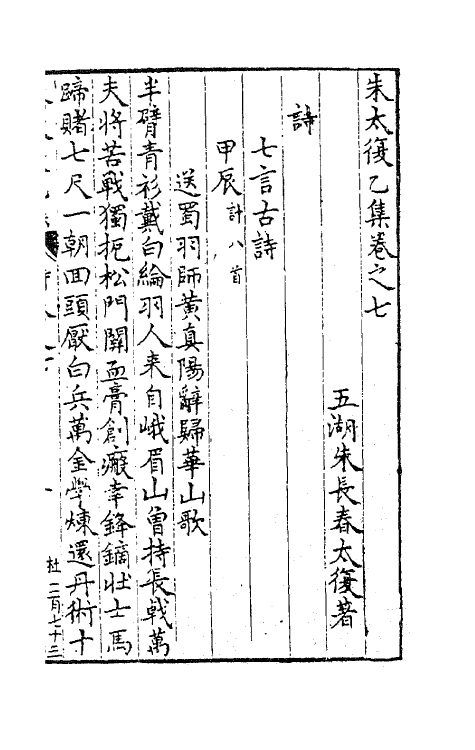 朱太復乙集卷之七
五湖朱長春太復著
詩
七言古詩
甲辰 計八首
送蜀羽師黃真陽辭歸華山歌
半臂青衫戴白綸羽人來自峨眉山曾持長戟萬
夫將苦戰獨扼松門關血膏創瘢幸鋒鏑壯士馬
蹄賭七尺一朝回頭厭白兵萬金學煉還丹術十